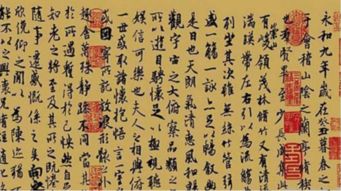 永和九年歲在癸丑暮春之
于會稽山陰之蘭亭脩
也群賢畢至少長咸
有崇山峻領茂林脩竹又有清
湍暎帶左右引以為流觴
列坐其次雖無絲竹管
盛一觴一詠亦足以暢敘
是日也天朗氣清惠風和
觀宇宙之大俯察品類
所以遊目騁懷足以極視聽
娛信可樂也夫人之相與俯
一世或取諸懷抱悟言一室
或因寄所託放浪形骸
趣舍萬殊靜躁不同
於所遇蹔得於己怏然自
知老之將至及其所之既
隨事遷感慨係之矣向
欣俛仰之閒以為陳迹猶
能不以之興懷況脩短